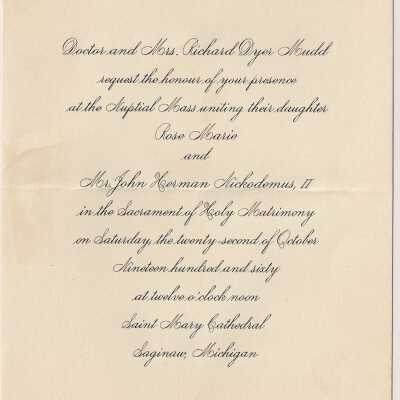 Doctor and Mrs. Richard Dyer Mudd
request the honour of your presence
at the Nuptial Mass uniting their daughter
Rose Marie
and
Mr. John Herman Nickodemus, II
in the Sacrament of Holy Matrimony
on Saturday, the twenty-second of October
Nineteen hundred and sixty
at twelve o'clock noon
Saint Mary Cathedral
Saginaw, Michigan